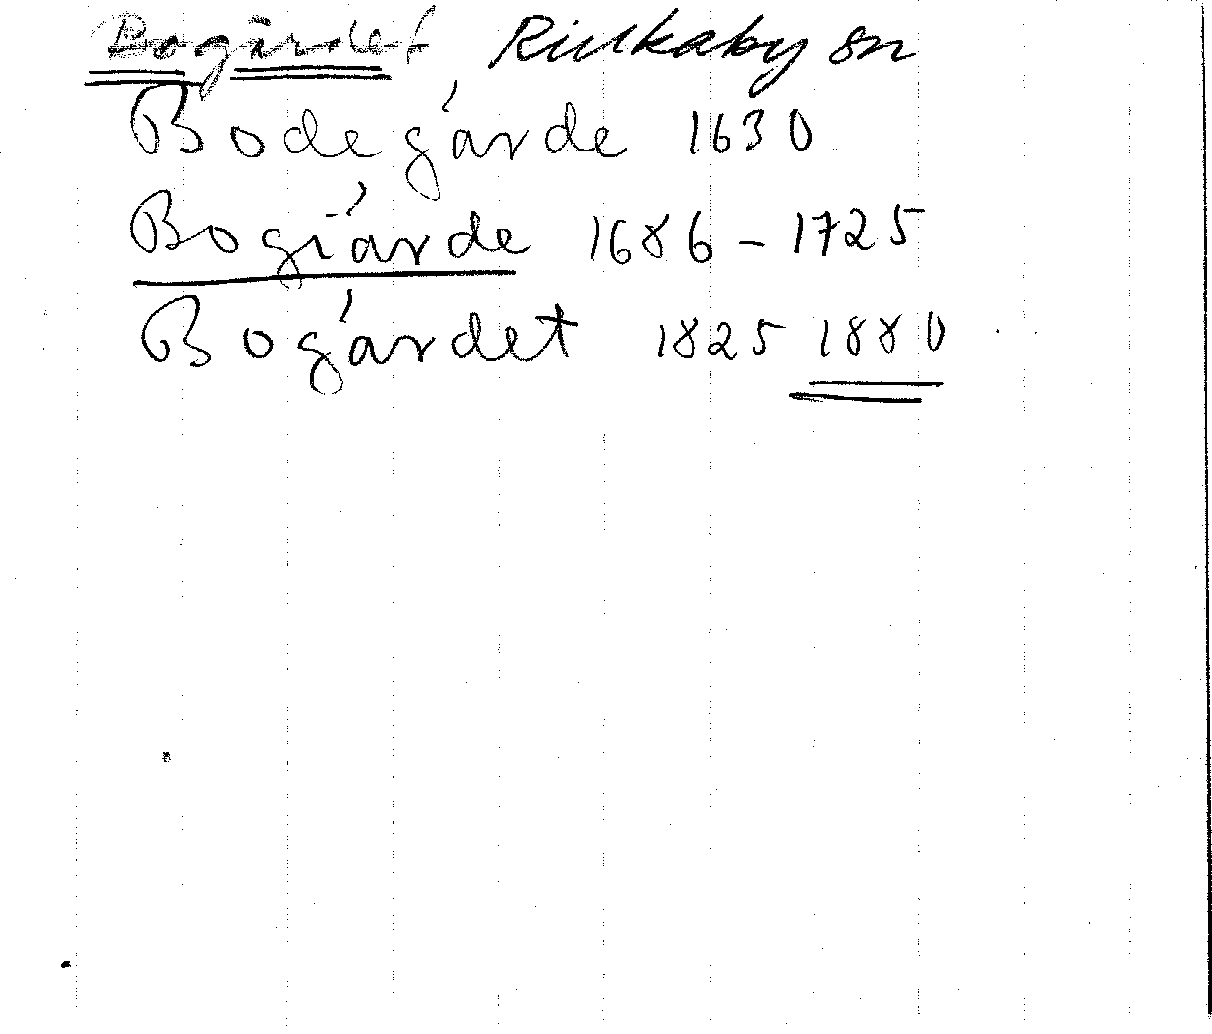 Bogärdet Rinkaby sn
Bodegärde 1630
Bogiärde 1686 - 1725
Bogärdet 1825 1880